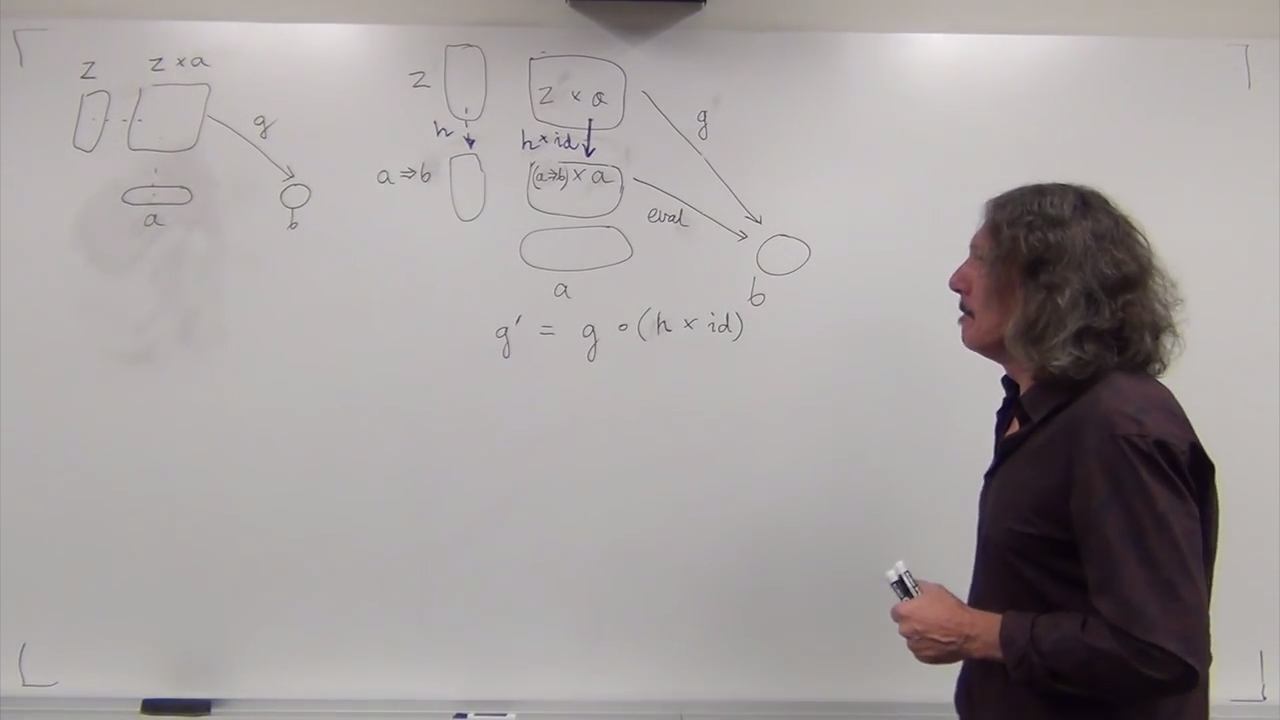 z z × a
g
a
b
z
z × a
g
h
h × id
a ⇒ b
(a⇒b) × a
eval
a
b
g' = g ∘ (h × id)